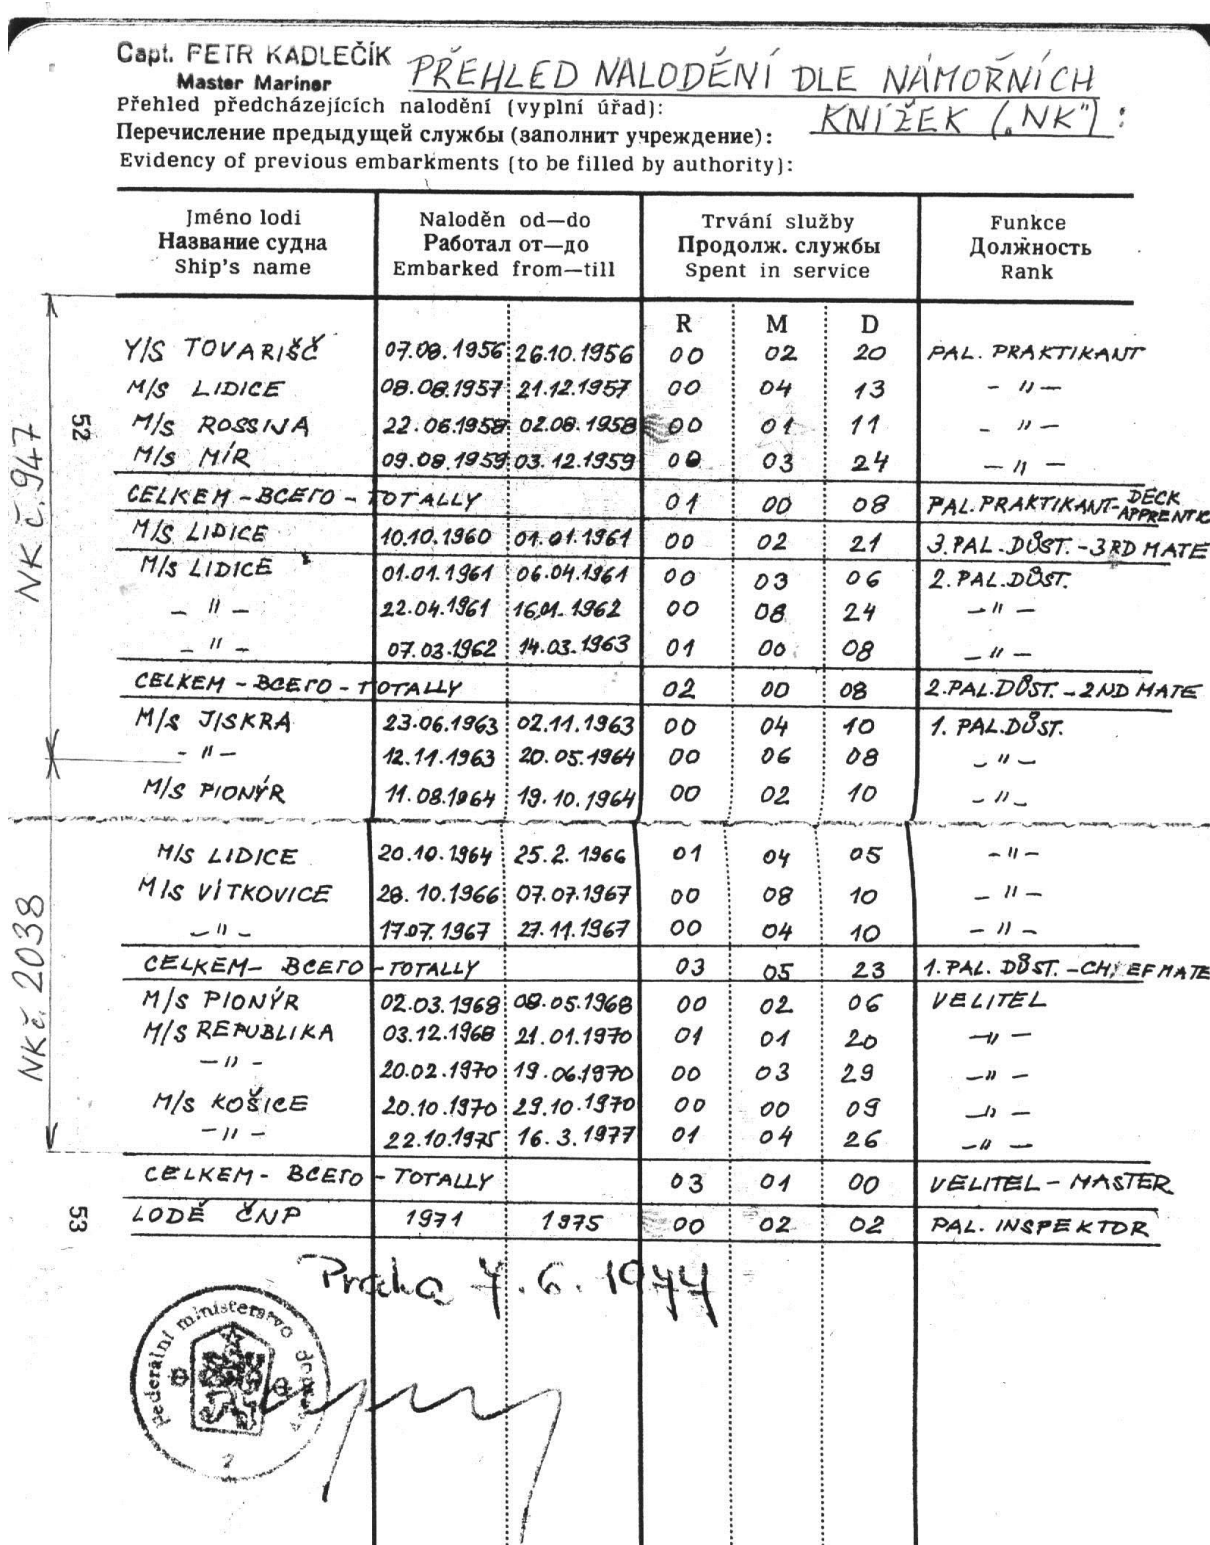 Capt. PETR KADLEČÍK
Master Mariner
PŘEHLED NALODĚNÍ DLE NÁMOŘNÍCH
KNÍŽEK („NK"):
Přehled předcházejících nalodění (vyplní úřad):
Перечисление предыдущей службы (заполнит учреждение):
Evidency of previous embarkments (to be filled by authority):
Jméno lodi Naloděn od—do Trvání služby Funkce
Название судна Работал от—до Продолж. службы Должность
Ship's name Embarked from—till Spent in service Rank
R M D
Y/S TOVARIŠČ 07.08.1956 26.10.1956 00 02 20 PAL. PRAKTIKANT
M/S LIDICE 08.08.1957 21.12.1957 00 04 13 - " -
M/S ROSSIJA 22.06.1958 02.08.1958 00 01 11 - " -
M/S MÍR 09.08.1959 03.12.1959 00 03 24 - " -
CELKEM - ВСЕГО - TOTALLY 01 00 08 PAL. PRAKTIKANT - DECK APPRENTIC
M/S LIDICE 10.10.1960 01.01.1961 00 02 21 3. PAL. DŮST. - 3RD MATE
M/S LIDICE 01.01.1961 06.04.1961 00 03 06 2. PAL. DŮST.
- " - 22.04.1961 16.01.1962 00 08 24 - " -
- " - 07.03.1962 14.03.1963 01 00 08 - " -
CELKEM - ВСЕГО - TOTALLY 02 00 08 2. PAL. DŮST. - 2ND MATE
M/S JISKRA 23.06.1963 02.11.1963 00 04 10 1. PAL. DŮST.
- " - 12.11.1963 20.05.1964 00 06 08 - " -
M/S PIONÝR 11.08.1964 19.10.1964 00 02 10 - " -
M/S LIDICE 20.10.1964 25.2.1966 01 04 05 - " -
M/S VÍTKOVICE 28.10.1966 07.07.1967 00 08 10 - " -
- " - 17.07.1967 27.11.1967 00 04 10 - " -
CELKEM - ВСЕГО - TOTALLY 03 05 23 1. PAL. DŮST. - CHIEF MATE
M/S PIONÝR 02.03.1968 08.05.1968 00 02 06 VELITEL
M/S REPUBLIKA 03.12.1968 21.01.1970 01 01 20 - " -
- " - 20.02.1970 19.06.1970 00 03 29 - " -
M/S KOŠICE 20.10.1970 29.10.1970 00 00 09 - " -
- " - 22.10.1975 16.3.1977 01 04 26 - " -
CELKEM - ВСЕГО - TOTALLY 03 01 00 VELITEL - MASTER
LODĚ ČNP 1971 1975 00 02 02 PAL. INSPEKTOR
NK č. 947
52
NK č. 2038
53
Praha 7.6.1977
Federální ministerstvo dopravy
2